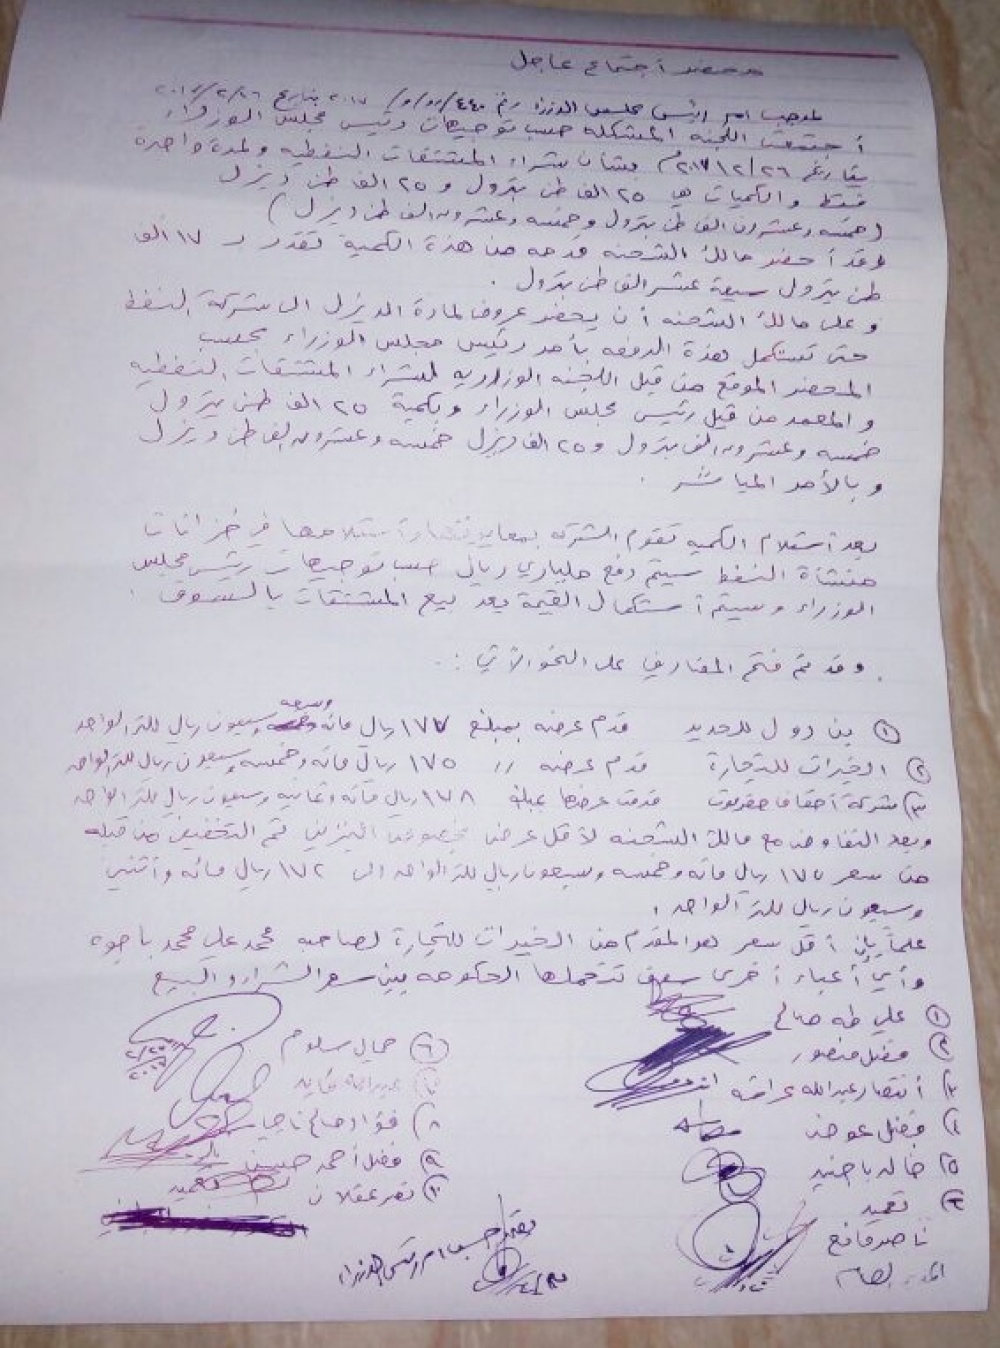 محضر اجتماع عاجل
بموجب امر رئيس مجلس الوزراء رقم بتاريخ ٢٠١٧/٢/٢٦
أجتمعت اللجنه المشكله حسب توجيهات رئيس مجلس الوزراء
بتاريخ ٢٠١٧/٢/٢٦م بشأن شراء المشتقات النفطيه ولمدة واحدة
فقط والكميات هي ٢٥ الف طن بترول و ٢٥ الف طن ديزل
(خمسه وعشرون الف طن بترول وخمسه وعشرون الف طن ديزل)
وقد أحضر مالك الشحنه قدمه من هذة الكمية تقدر ب ١٧ الف
طن بترول سبعة عشر الف طن بترول .
وعلى مالك الشحنه أن يحضر عروض لمادة الديزل الى شركة النفط
حتى تستكمل هذة الدفعه بأمر رئيس مجلس الوزراء بحسب
المحضر الموقع من قبل اللجنه الوزاريه لشراء المشتقات النفطيه
والمعمد من قبل رئيس مجلس الوزراء وبكمية ٢٥ الف طن بترول
خمسه وعشرون الف بترول و ٢٥ الف ديزل خمسه وعشرون الف طن ديزل
وبالأمر المباشر .
بعد أستلام الكميه تقوم الشركه بمعاينتها وأستلامها في خزانات
منشأة النفط سيتم دفع ملياري ريال حسب توجيهات رئيس مجلس
الوزراء وسيتم أستكمال القيمة بعد بيع المشتقات بالسوق .
وقد تم فتح المضاريف على النحو الآتي :.
① بن دول للحديد قدم عرضه بمبلغ ١٧٧ ريال مائه وسبعه وسبعون ريال للتر الواحد
② الخيرات للتجارة قدم عرضه // ١٧٥ ريال مائه وخمسه وسبعون ريال للتر الواحد
③ شركة أحقاف حضرموت قدمت عرضها بمبلغ ١٧٨ ريال مائه وثمانيه وسبعون ريال للتر الواحد
وبعد التفاوض مع مالك الشحنه لأقل عرض بخصوص البنزين تم التخفيض من قبله
من سعر ١٧٥ ريال مائه وخمسه وسبعون ريال للتر الواحد الى ١٧٢ ريال مائه وأثنين
وسبعون ريال للتر الواحد .
علماً بإن أقل سعر هو المقدم من الخيرات للتجارة لصاحبه محمد علي محمد باجوه
وأي أعباء أخرى سوف تتحملها الحكومه بين سعر الشراء والبيع
① علي طه صالح
② فضل منصور
③ أنتصار عبدالله عراشه
④ فضل عوض
⑤ خالد باجنيد
⑥ تعميد
ناصر قانع
المدير العام
⑥ جمال سلوم
⑦ عبدالله
⑧ فؤاد صالح ناجي
⑨ فضل أحمد حسين
⑩ نصر عقلان
حسب امر رئيس الوزراء